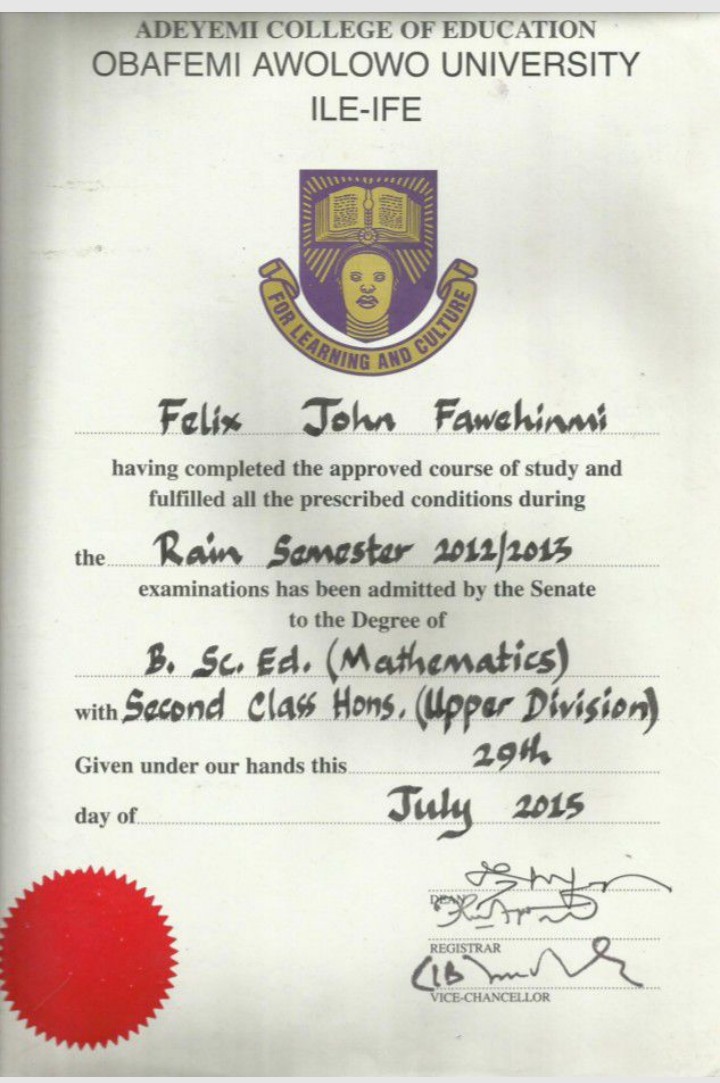 ADEYEMI COLLEGE OF EDUCATION
OBAFEMI AWOLOWO UNIVERSITY
ILE-IFE
FOR LEARNING AND CULTURE
Felix John Fawehinmi
having completed the approved course of study and
fulfilled all the prescribed conditions during
the Rain Semester 2012/2013
examinations has been admitted by the Senate
to the Degree of
B. Sc. Ed. (Mathematics)
with Second Class Hons. (Upper Division)
Given under our hands this 29th
day of July 2015
DEAN
REGISTRAR
VICE-CHANCELLOR